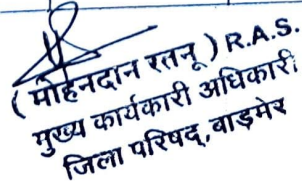 ( मोहनदान रतनू ) R.A.S.
मुख्य कार्यकारी अधिकारी
जिला परिषद्, बाड़मेर